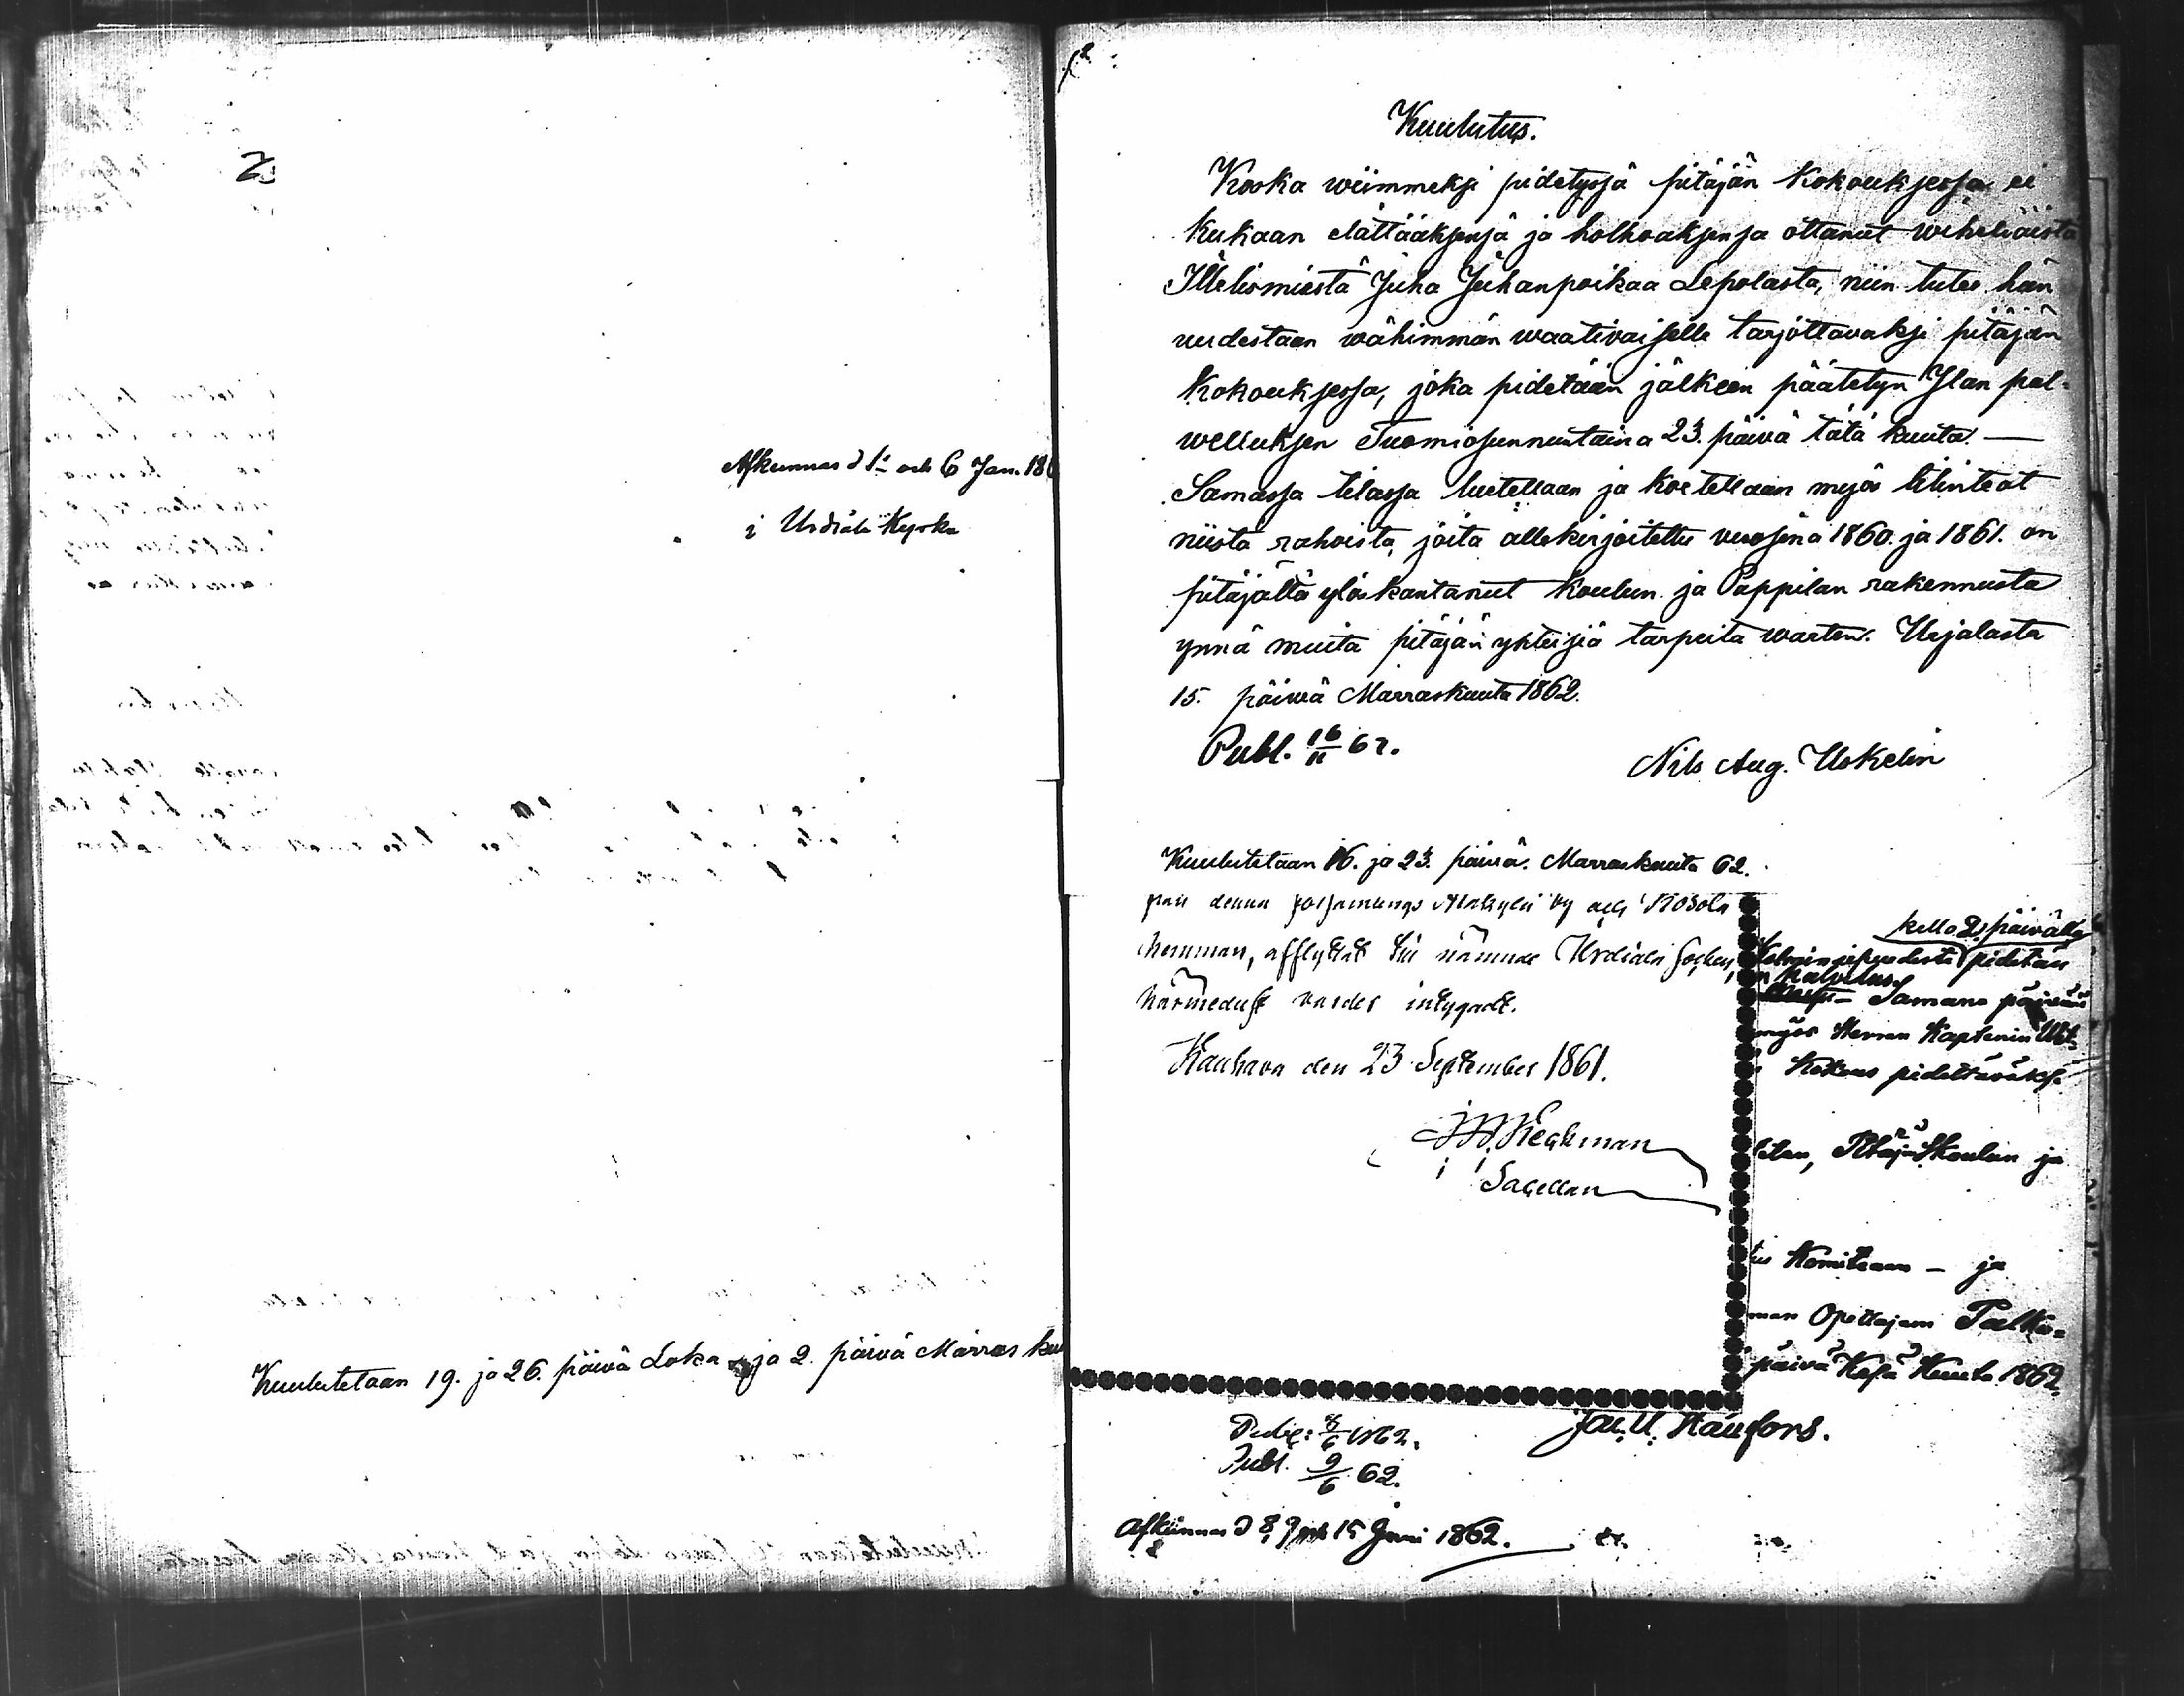 Afkunnas d 1ste och 6 Jan. 186
i Urdiala Kyrka
Kuulutetaan 19. ja 26. päivä Loka ja 2. päivä Marras kuu
Kuulutus.
Koska wiimmeksi pidetyssä pitäjän Kokouksessa ei
kukaan elättääksensä ja holhoaksensa ottanut wiheliäistä
Itellismiestä Juha Juhanpoikaa Lepolasta, niin tulee hän
uudestaan wähimmän waativaiselle tarjottavaksi pitäjän
Kokouksessa, joka pidetään jälkeen päätetyn Jlan pal-
welluksen Tuomiosunnuntaina 23. päivä tätä kuuta. —
Samassa tilassa luetellaan ja koetellaan myös tilinteot
niistä rahoista, joita allekirjoitettu vuosina 1860. ja 1861. on
pitäjältä ylöskantanut koulun ja Pappilan rakennusta
ynnä muita pitäjän yhteisiä tarpeita warten. Urjalasta
15. päivä Marraskuuta 1862.
Publ. 16/11 62.
Nils Aug. Uskelin
Kuulutetaan 16. ja 23. päivä. Marraskuuta 62.
från denna församlings by och
hemman, afflyttat till nämnde Urdiala Socken,
härmedelst varder intygadt.
Kauhava den 23 September 1861.
Sacellan
kello 2 päivällä
pidetän
Samana päivänä
myös Herran Kaptenin
Kokous pidettäväksi
Pitäjän Skoulun ja
Komitean — ja
man Opettajan Palkka-
päivä Kesä Kuuta 1862.
Public: 8/6 1862.
Publ. 9/6 62.
Afkunnas d 8, 9 och 15 Juni 1862.